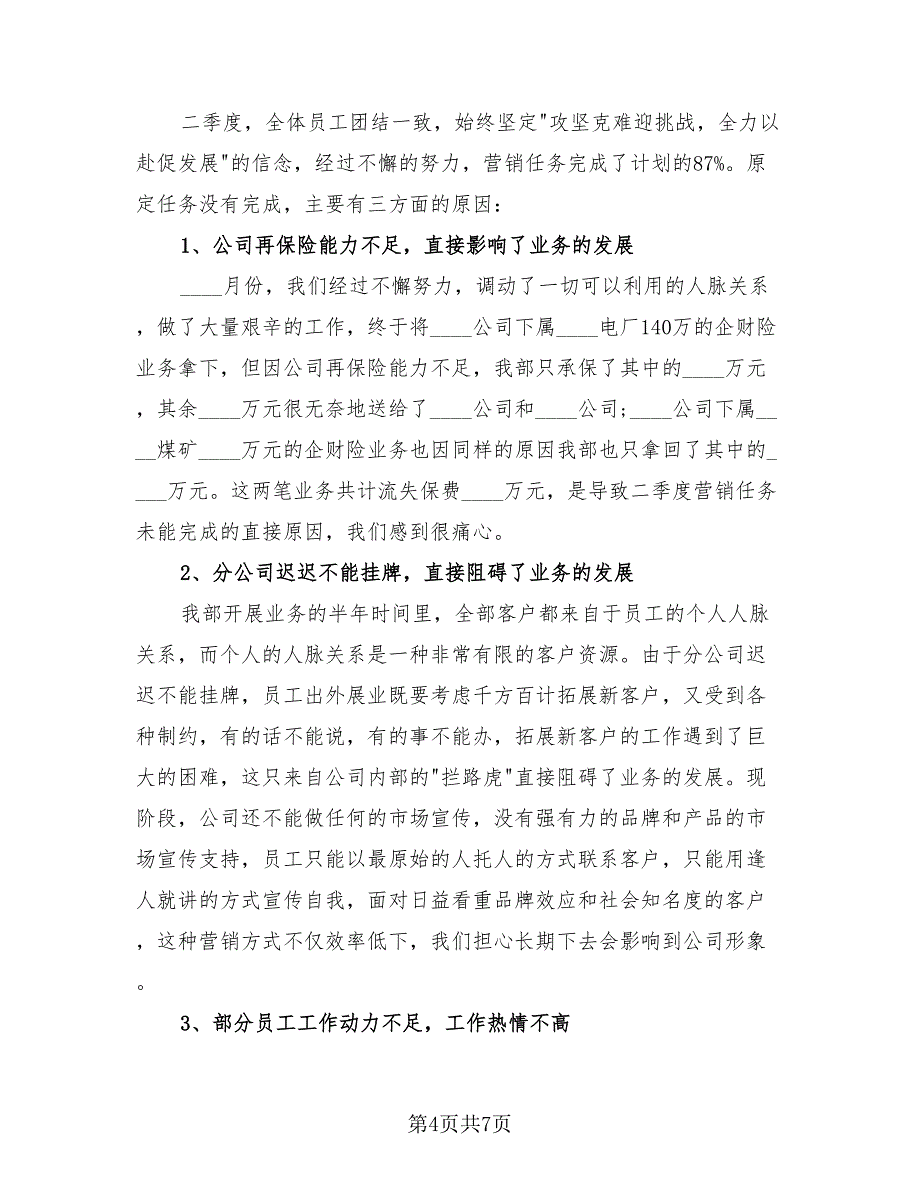 二季度，全体员工团结一致，始终坚定"攻坚克难迎挑战，全力以
赴促发展"的信念，经过不懈的努力，营销任务完成了计划的87%。原
定任务没有完成，主要有三方面的原因：
1、公司再保险能力不足，直接影响了业务的发展
____月份，我们经过不懈努力，调动了一切可以利用的人脉关系
，做了大量艰辛的工作，终于将____公司下属____电厂140万的企财险
业务拿下，但因公司再保险能力不足，我部只承保了其中的____万元
，其余____万元很无奈地送给了____公司和____公司;____公司下属__
__煤矿____万元的企财险业务也因同样的原因我部也只拿回了其中的_
___万元。这两笔业务共计流失保费____万元，是导致二季度营销任务
未能完成的直接原因，我们感到很痛心。
2、分公司迟迟不能挂牌，直接阻碍了业务的发展
我部开展业务的半年时间里，全部客户都来自于员工的个人人脉
关系，而个人的人脉关系是一种非常有限的客户资源。由于分公司迟
迟不能挂牌，员工出外展业既要考虑千方百计拓展新客户，又受到各
种制约，有的话不能说，有的事不能办，拓展新客户的工作遇到了巨
大的困难，这只来自公司内部的"拦路虎"直接阻碍了业务的发展。现
阶段，公司还不能做任何的市场宣传，没有强有力的品牌和产品的市
场宣传支持，员工只能以最原始的人托人的方式联系客户，只能用逢
人就讲的方式宣传自我，面对日益看重品牌效应和社会知名度的客户
，这种营销方式不仅效率低下，我们担心长期下去会影响到公司形象
。
3、部分员工工作动力不足，工作热情不高
第4页共7页